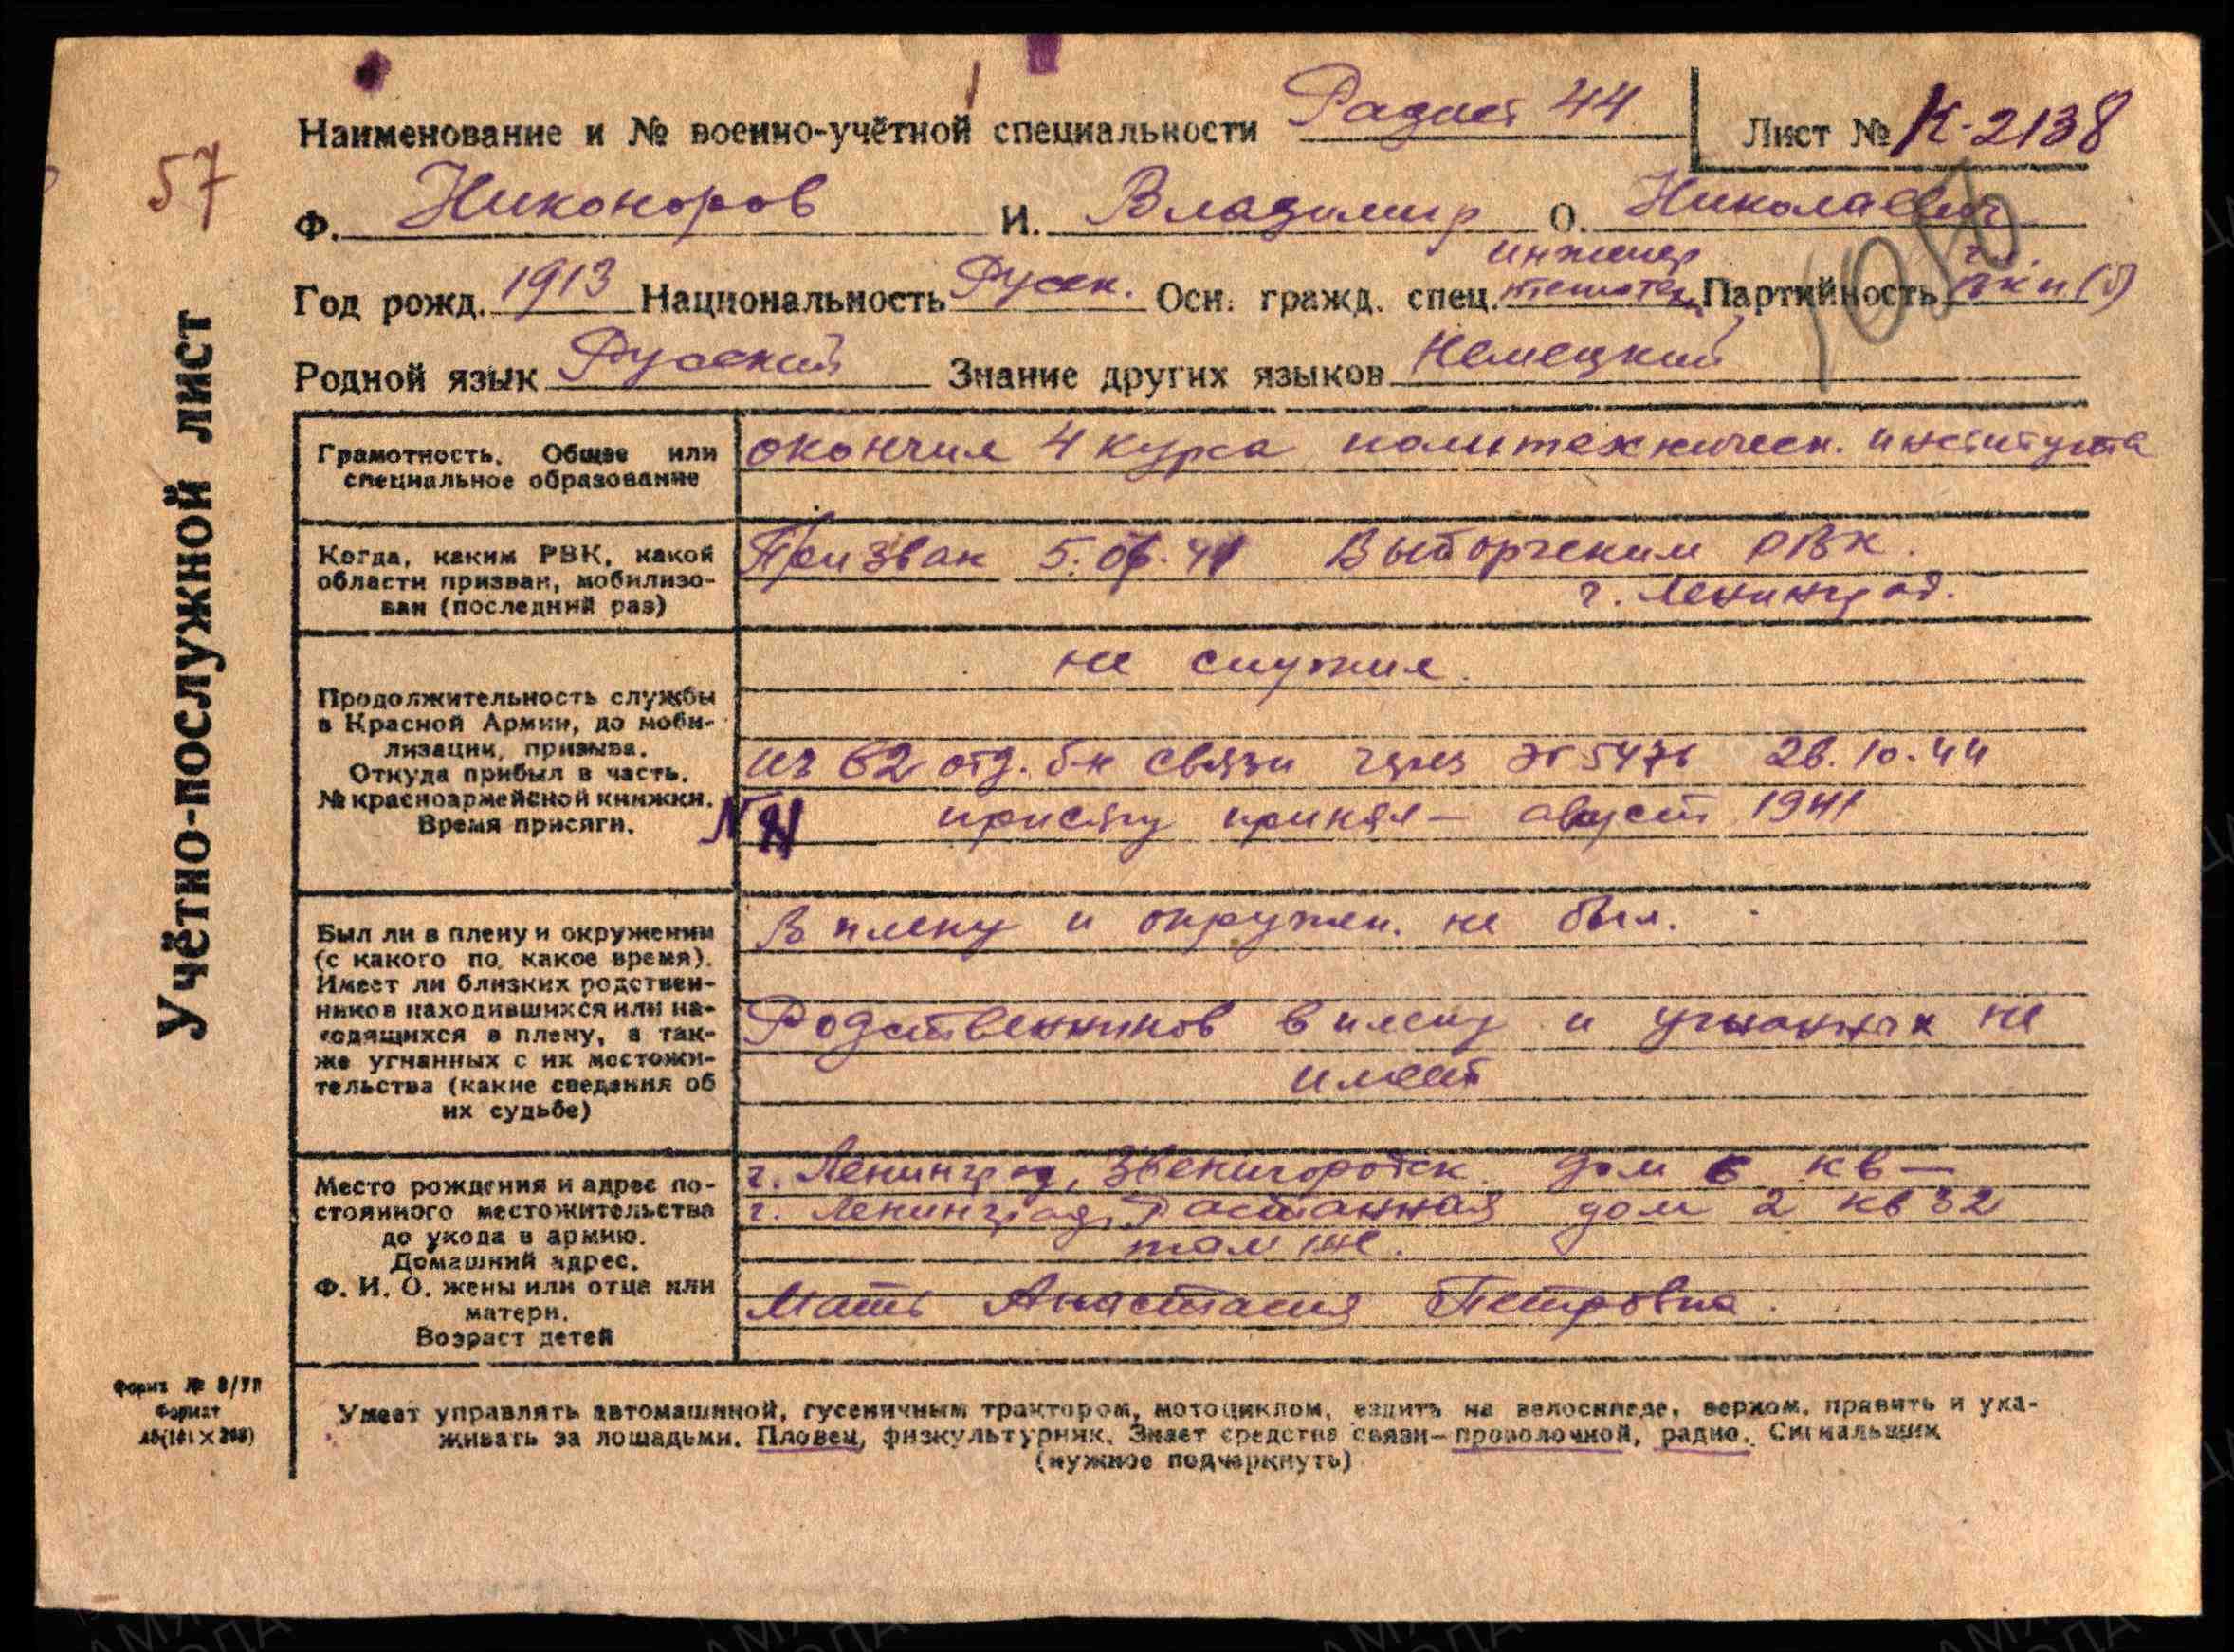 Наименование и № военно-учётной специальности Радист 44
Лист № К-2138
57
Ф. Никоноров И. Владимир О. Николаевич
Год рожд. 1913 Национальность Русск. Осн. гражд. спец. инженер Партийность вкп(б)
Родной язык Русский Знание других языков Немецкий
Учётно-послужной лист
Грамотность. Общее или
специальное образование
окончил 4 курса политехническ. института
Когда, каким РВК, какой
области призван, мобилизо-
ван (последний раз)
Призван Выборгским РВК.
г. Ленинград.
Продолжительность службы
в Красной Армии, до моби-
лизации, призыва.
Откуда прибыл в часть.
№ красноармейской книжки.
Время присяги.
не служил.
из 62 отд. б-н связи через 26.10.44
присягу принял — август 1941
Был ли в плену и окружении
(с какого по какое время).
Имеет ли близких родствен-
ников находившихся или на-
ходящихся в плену, а так-
же угнанных с их местожи-
тельства (какие сведения об
их судьбе)
В плену и окружен. не был.
Родственников в плену и угнанных не
имеет
Место рождения и адрес по-
стоянного местожительства
до ухода в армию.
Домашний адрес.
Ф. И. О. жены или отца или
матери.
Возраст детей
г. Ленинград, Звенигородск. дом 6 кв —
г. Ленинград, Расстанная дом 2 кв 32
там же.
Мать Анастасия Петровна.
Форма № 8/УП
Формат
Умеет управлять автомашиной, гусеничным трактором, мотоциклом, ездить на велосипеде, верхом, править и уха-
живать за лошадьми. Пловец, физкультурник. Знает средства связи — проволочной, радио. Сигнальщик
(нужное подчеркнуть)